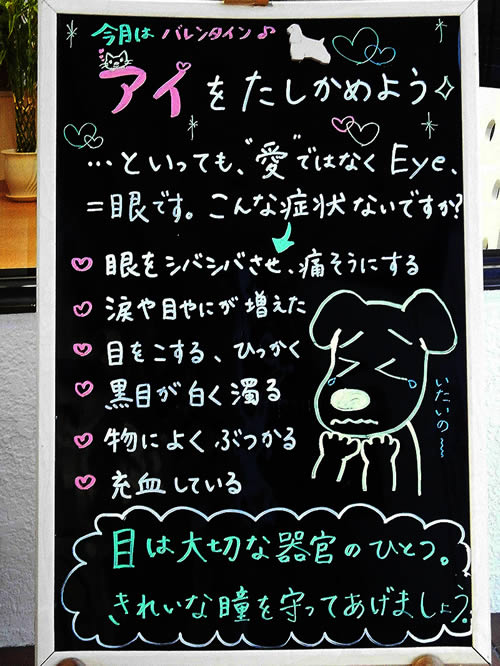 今月は バレンタイン♪
アイをたしかめよう✧
…といっても、“愛”ではなく Eye、
=眼です。こんな症状ないですか?
眼をシバシバさせ、痛そうにする
涙や目やにが増えた
目をこする、ひっかく
黒目が白く濁る
物によくぶつかる
充血している
いたいの〜
目は大切な器官のひとつ。
きれいな瞳を守ってあげましょう。